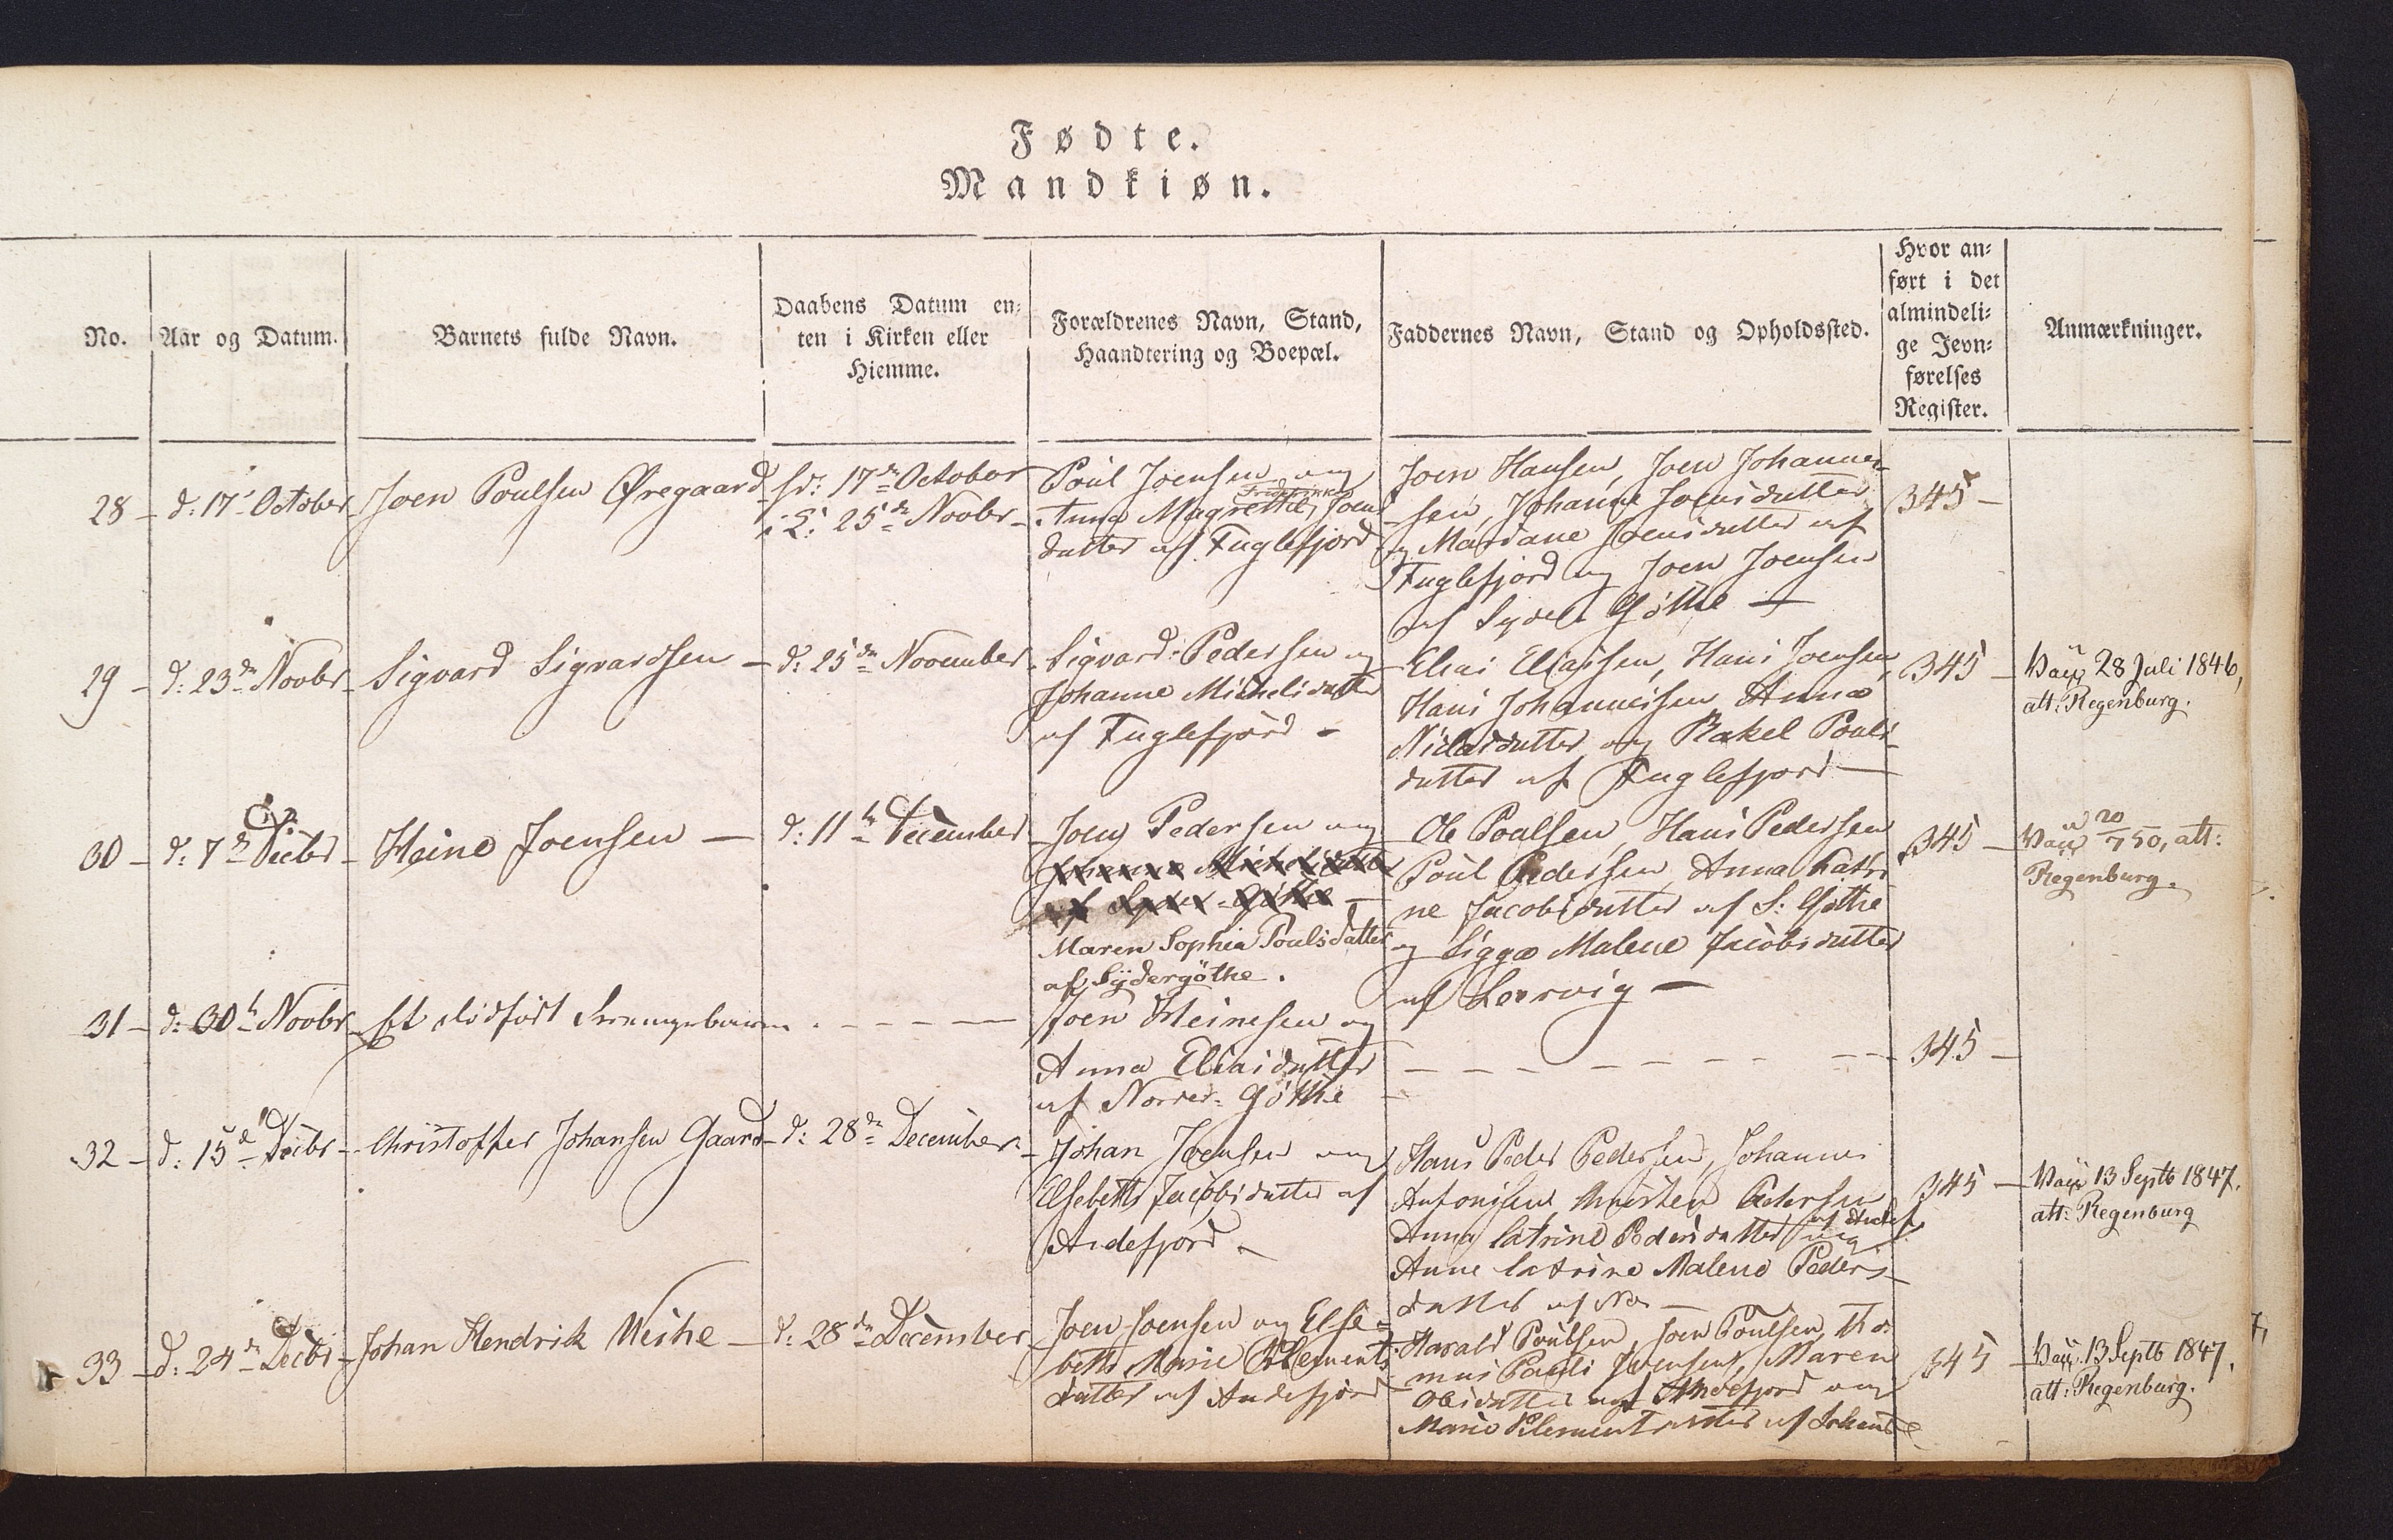 Fødte.
Mandkiøn.
No.
Aar og Datum.
Barnets fulde Navn.
Daabens Datum en-
ten i Kirken eller
Hiemme.
Forældrenes Navn, Stand,
Haandtering og Boepæl.
Faddernes Navn, Stand og Opholdssted.
Hvor an-
ført i det
almindeli-
ge Jevn-
førelses
Register.
Anmærkninger.
28 - d: 17 October
Joen Poulsen Øregaard
17de October
25de Novbr -
Poul Joensen og
Anna Magrethe Joens
datter af Fuglefjord
Joen Hansen, Joen Johannes-
sen, Johanne Joensdatter
og Mariane Joensdatter af
Fuglefjord og Joen Joensen
af Syder Gøthe -
345 -
29 - d: 23de Novbr -
Sigvard Sigvardsen -
d: 25de November
Sigvard Pedersen og
Johanne Michelsdatter
af Fuglefjord -
Elias Eliassen, Hans Joensen,
Hans Johannessen Anna
Niclasdatter og Rakel Pouls-
datter af Fuglefjord -
345 -
Vacc 28 Juli 1846,
att: Regenburg.
30 - d: 7de Decbr -
Heine Joensen -
d: 11te December
Joen Pedersen og
Johanne Michelsdatter
af Syder Gøthe -
Maren Sophia Poulsdatter
af Sydergøthe.
Ole Poulsen, Hans Pedersen
Poul Pedersen, Anna Katri
ne Jacobsdatter af S: Gøthe
og Sigga Malene Jacobsdatter
af Lervig -
345 -
Vacc 20/7 50, att:
Regenburg.
31 - d: 30te Novbr
Et dødfødt Drengebarn
Joen Heinesen og
Anna Eliasdatter
af Norder-Gøthe
345 -
32 - d: 15de Decbr -
Christoffer Johansen Gaard -
d: 28de December
Johan Joensen og
Elsebeth Jacobsdatter af
Andefjord -
Hans Peder Pedersen, Johannes
Antonisen, Christen Pedersen
Anna Catrine Pedersdatter af Andef. og
Anne Catrine Malene Peders-
datter af
345 -
Vacc 13 Septb 1847.
att: Regenburg
33 - d: 24de Decbr -
Johan Hendrik Weihe -
d: 28de December
Joen Joensen og Else-
beth Marie Clements
datter af Andefjord
Harald Poulsen, Joen Poulsen, Tho
mas Pauli Joensen, Maren
Olesdatter af Andefjord og
Marie Klementsdatter af
345
Vacc 13 Septb 1847.
att: Regenburg.